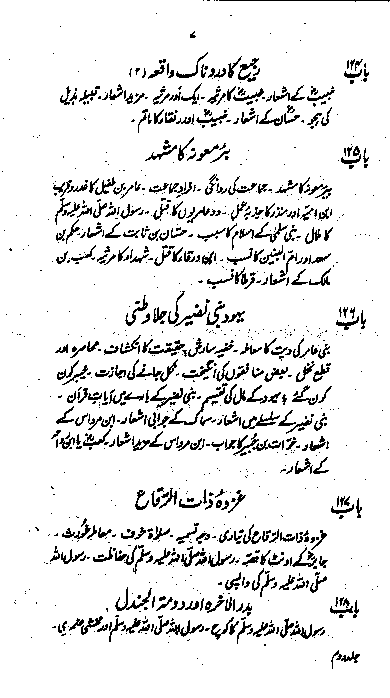 ۷
باب ۱۲۴
رجیع کا دردناک واقعہ (۲)
خبیبؓ کے اشعار۔ خبیبؓ کا مرثیہ۔ ایک اور مرثیہ۔ مزید اشعار۔ قبیلہ ہذیل
کی ہجو۔ حسّان کے اشعار۔ خبیبؓ اور رفقاء کا ماتم۔
باب ۱۲۵
بئر معونہ کا مشہد
بئر معونہ کا مشہد۔ جماعت کی روانگی۔ افراد جماعت۔ عامر بن طفیل کا غدر و فریب
ابن امیہ اور منذر کا جذبۂ عمل۔ دو عامریوں کا قتل۔ رسول اللہ صلی اللہ علیہ وسلم
کا ملال۔ بنی سلمیٰ کے اسلام کا سبب۔ حسّان بن ثابت کے اشعار۔ حکم بن
سعد اور ام البنین کا نسب۔ ابن ورقاء کا قتل۔ شہداء کا مرثیہ۔ کعب بن
مالک کے اشعار۔ قرطا کا نسب۔
باب ۱۲۶
یہود بنی نضیر کی جلاوطنی
بنی عامر کی دیت کا معاملہ۔ خفیہ سازش، حقیقت کا انکشاف۔ محاصرہ اور
قطع نخل۔ بعض منافقوں کی انگیخت۔ نکل جانے کی اجازت۔ خیبر کون
کون گئے؟ یہود کے مال کی تقسیم۔ بنی نضیر کے بارے میں آیات قرآن۔
بنی نضیر کے سلسلے میں اشعار۔ سماک کے جوابی اشعار۔ ابن مرداس کے
اشعار۔ خوّات بن جبیر کا جواب۔ ابن مرداس کے مزید اشعار۔ کعبؓ یا ابن رواحہؓ
کے اشعار۔
باب ۱۲۷
غزوۂ ذات الرّقاع
غزوۂ ذات الرّقاع کی تیاری۔ وجہ تسمیہ۔ صلوٰۃ خوف۔ معاملۂ غورث۔
جابرؓ کے اونٹ کا قصّہ۔ رسول اللہ صلی اللہ علیہ وسلم کی حفاظت۔ رسول اللہ
صلی اللہ علیہ وسلم کی واپسی۔
باب ۱۲۸
بدر الآخرہ اور دومۃ الجندل
رسول اللہ صلی اللہ علیہ وسلم کا کوچ۔ رسول اللہ صلی اللہ علیہ وسلم اور مخشی ضمری۔
جلد دوم